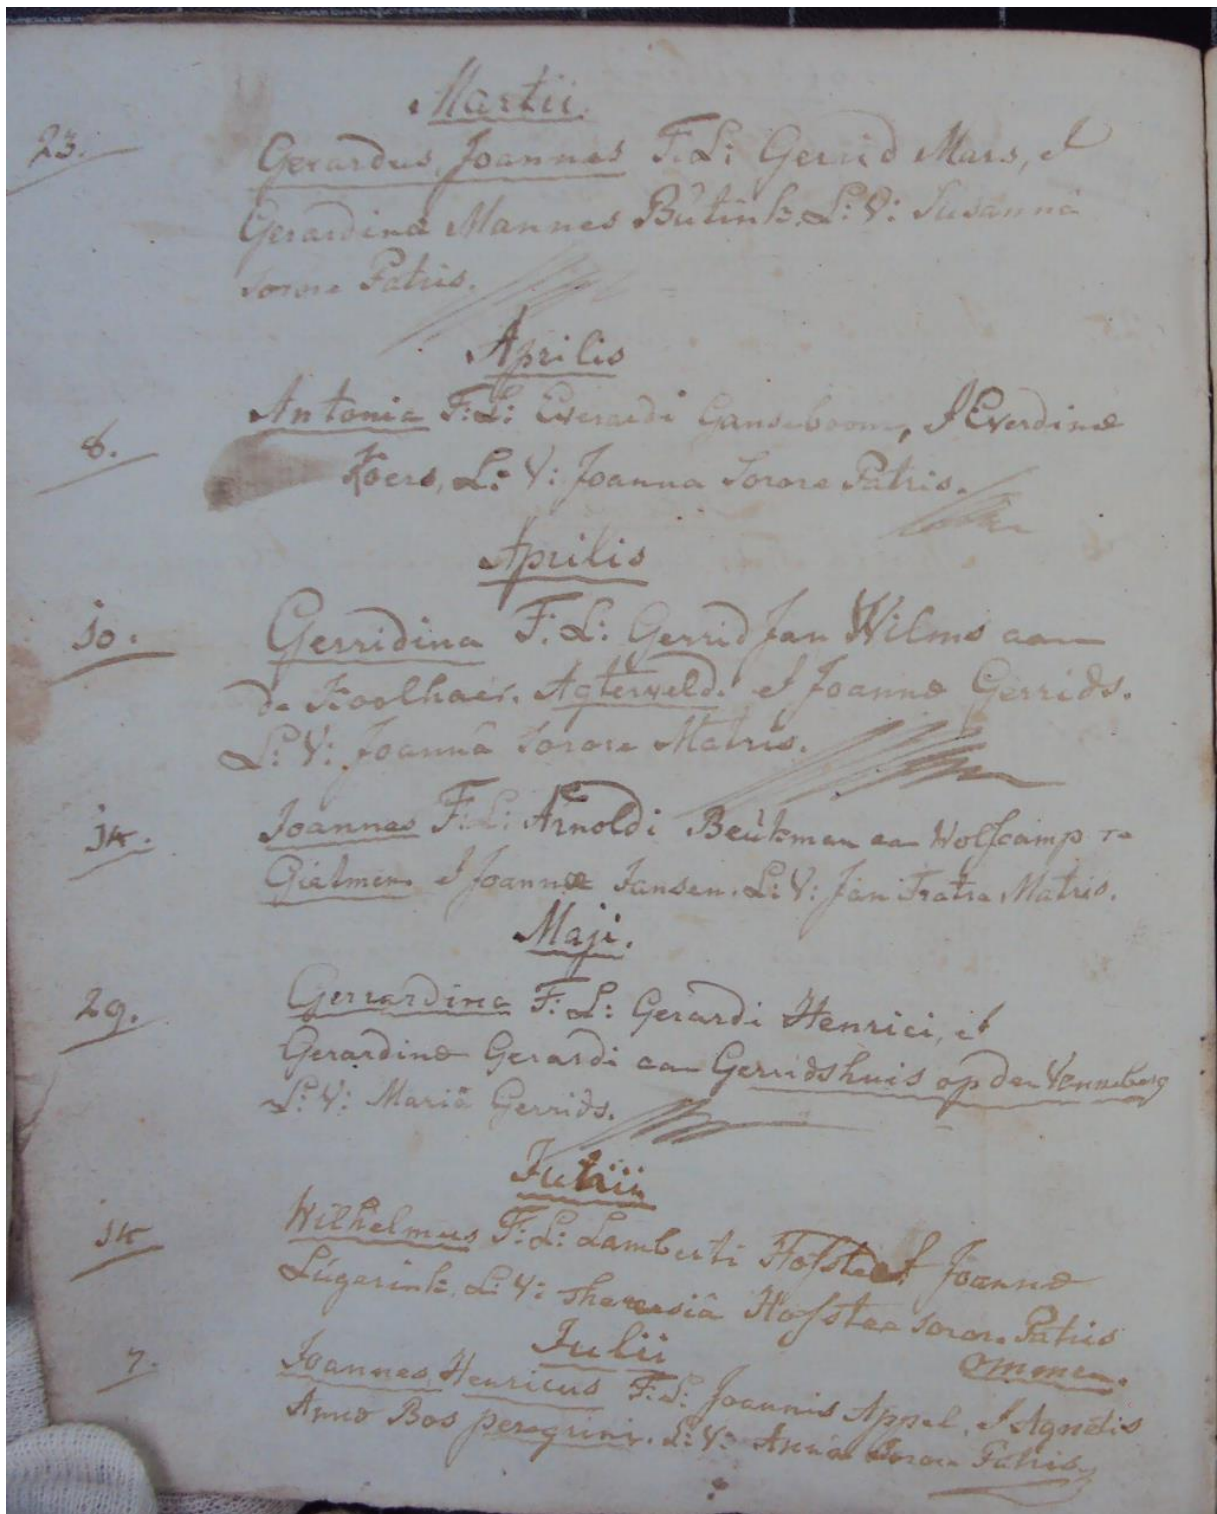 Martii.
23. Gerardus Joannes F: L: Gerrid Mars, et
Gerardinæ Mannes Bûtink. L: V: Susannâ
Sorore Patris.
Aprilis
Antonia F: L: Everardi Ganseboom, et Everdinæ
8. Koers, L: V: Joanna Sorore Patris.
Aprilis
10. Gerridina F: L: Gerrid Jan Wilms aan
de Koolhaer. Agterveld. et Joannæ Gerrids.
L: V: Joannâ Sorore Matris.
14. Joannes F: L: Arnoldi Beükman aan Wolfcamp te
Gietmen et Joannæ Jansen. L: V: Jan Fratre Matris.
Maji.
29. Gerrardina F: L: Gerardi Henrici, et
Gerardinæ Gerardi aan Gerridshuis op den Venneberg
L: V: Mariâ Gerrids.
14 Wilhelmus F: L: Lamberti Hofstee et Joannæ
Lúgerink. L: V: Theresiâ Hofstee Sorore Patris
Julii Ommen.
7. Joannes Henricus F: L: Joannis Appel, et Agnetis
Bos peregrini. L: V: Anna Sorore Patris